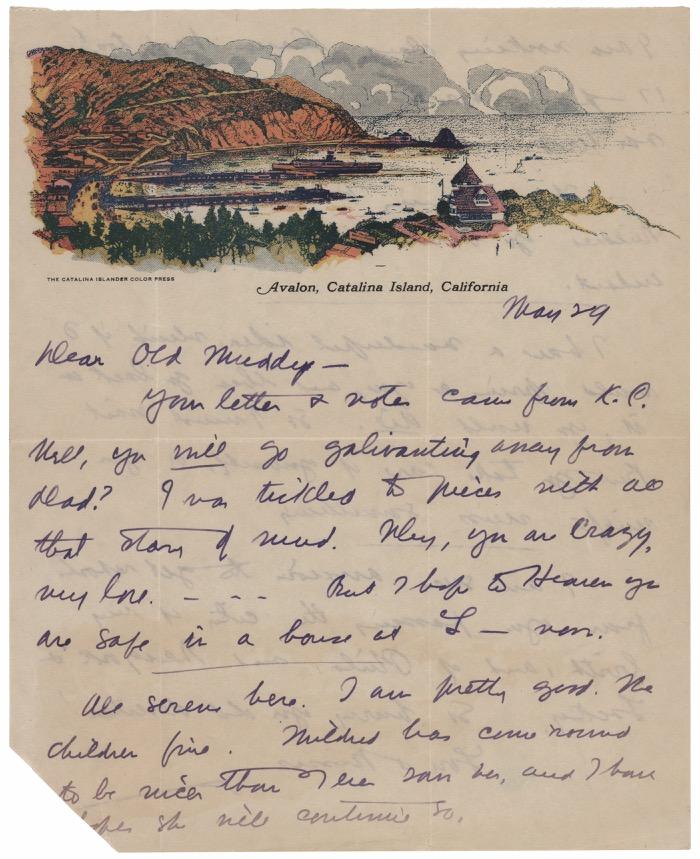 THE CATALINA ISLANDER COLOR PRESS
Avalon, Catalina Island, California
May 29
Dear Old Muddy—
Your letter & votes came from K.C.
Well, you will go galivanting away from
Dad? I was tickled to pieces with all
that story of mud. Why, you are Crazy,
my love. - - - - But I hope to Heaven you
are safe in a house at L— now.
All serene here. I am pretty good. The
children fine. Mildred has come 'round
to be nicer than I ever saw her, and I have
hopes she will continue so.